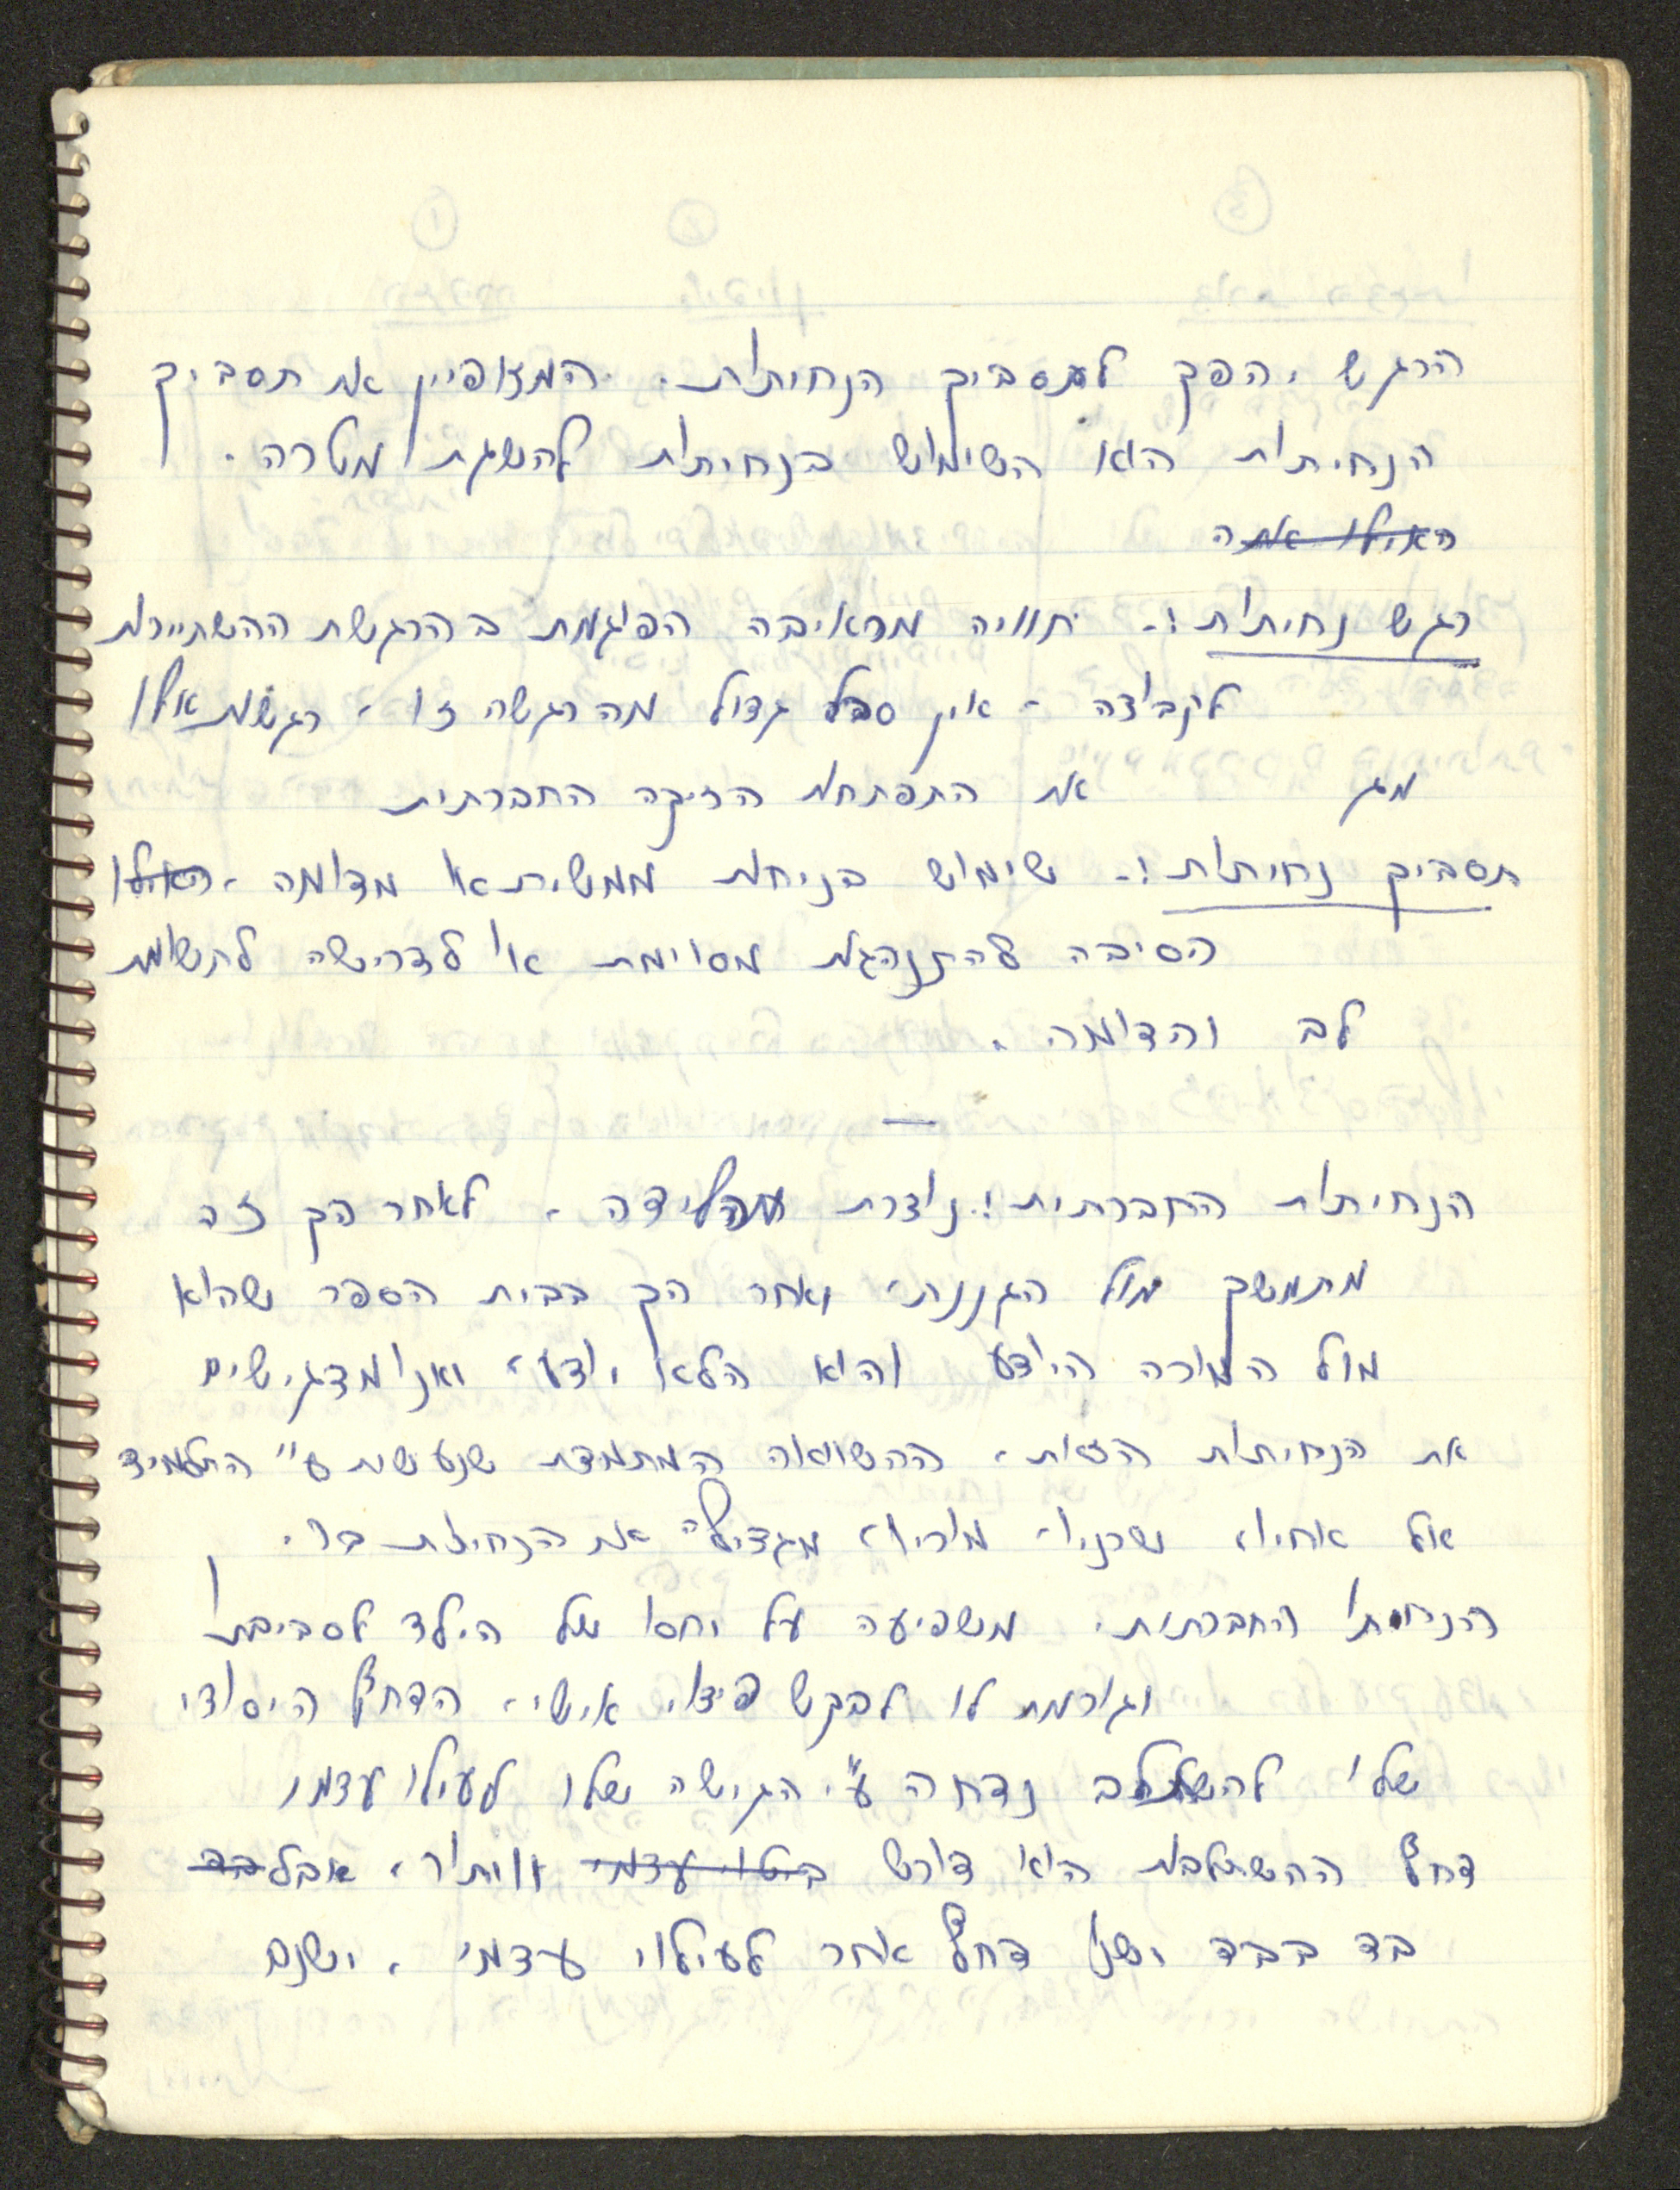 הרגש יהפך לתסביך הנחיתות. המאופיין את תסביך
הנחיתות הוא השימוש בנחיתות להשגת מטרה.
האילו אתה
רגש נחיתות:- חוויה מכאיבה הפוגמת בהרגשת ההשתייכות
לקבוצה - אין סבל גדול מהרגשה זו, רגשות אלו
את התפתחות הזיקה החברתית
תסביך נחיתות:- שימוש בניחות ממשית או מדומה, כאילו
הסיבה להתנהגות מסוימת או לדרישה לתשומת
לב והדומה.
—
הנחיתות החברתית: נוצרת מהלידה, לאחר הכן זה
מתמשך מול הגננת, ואחר הכן בבית הספר שהוא
מול המורה היודע והוא הלא יודע, ואנו מדגישים
את הנחיתות הזאת, ההשוואה המתמדת שנעשית ע"י התלמיד
אל אחיו, שכניו, מוריו, מגדילה את הנחיתות בו.
הנחיתות החברתית. משפיעה על יחסו של הילד לסביבתו
וגורמת לו לבקש פיצוי אישי, הדחף היסודי
שלו להשתלב נדחה ע"י הגישה שלו לעילוי עצמו
דחף ההשתלבות הוא דורש ביטוי עצמי וויתור, אבל בד
בד בבד ישנו דחף אחר לעילוי עצמי, ישנם